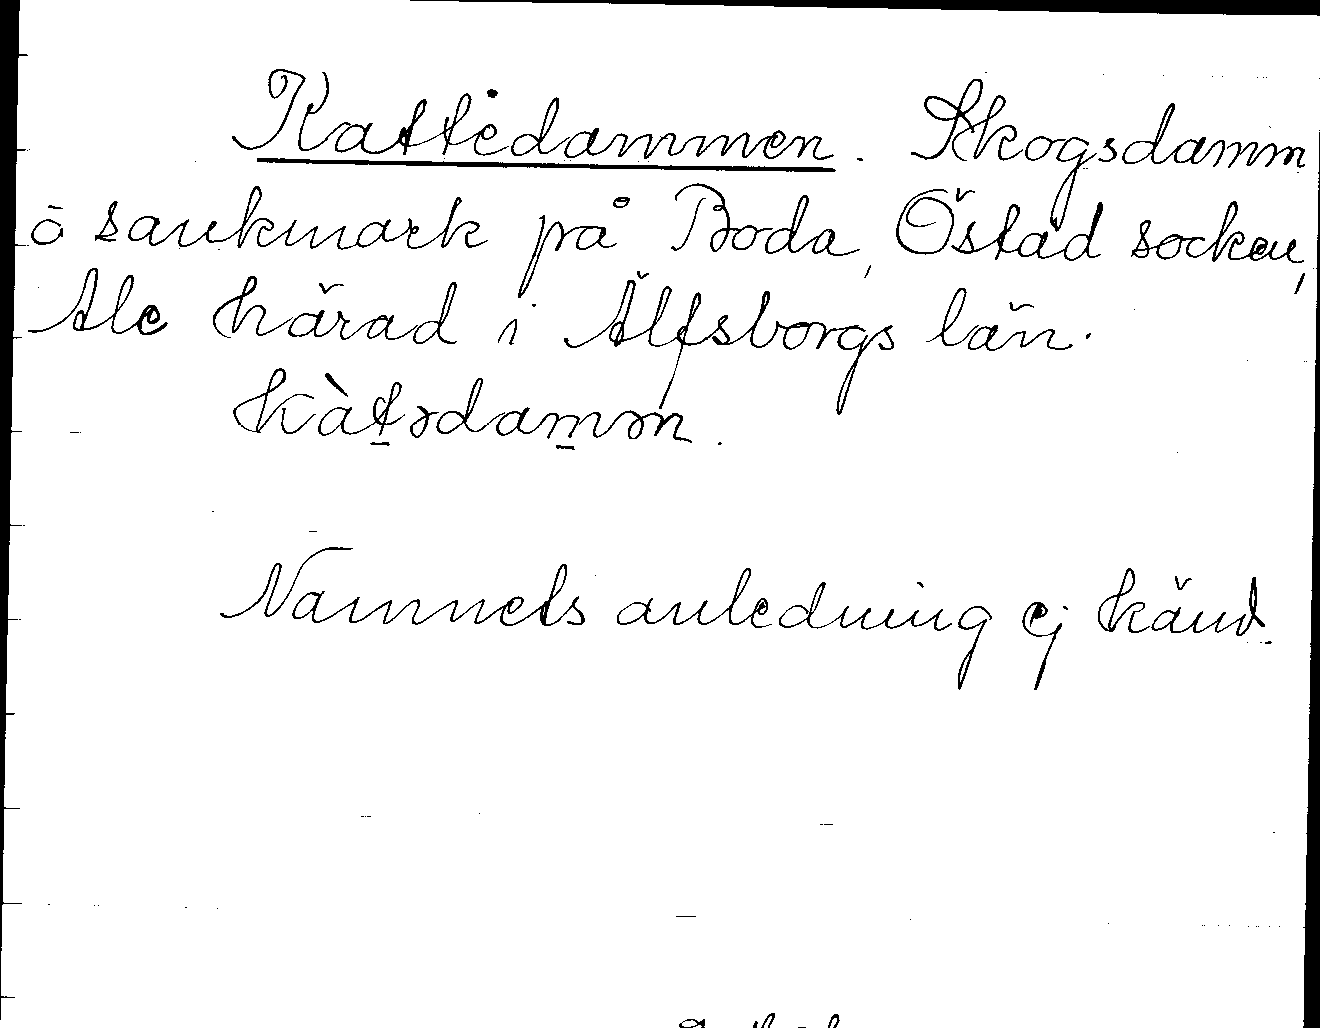 Kattedammen. Skogsdamm
ö sankmark på Boda, Östad socken,
Ale härad i Älfsborgs län.
kàt̠ədam̠ən.
Namnets anledning ej känd.